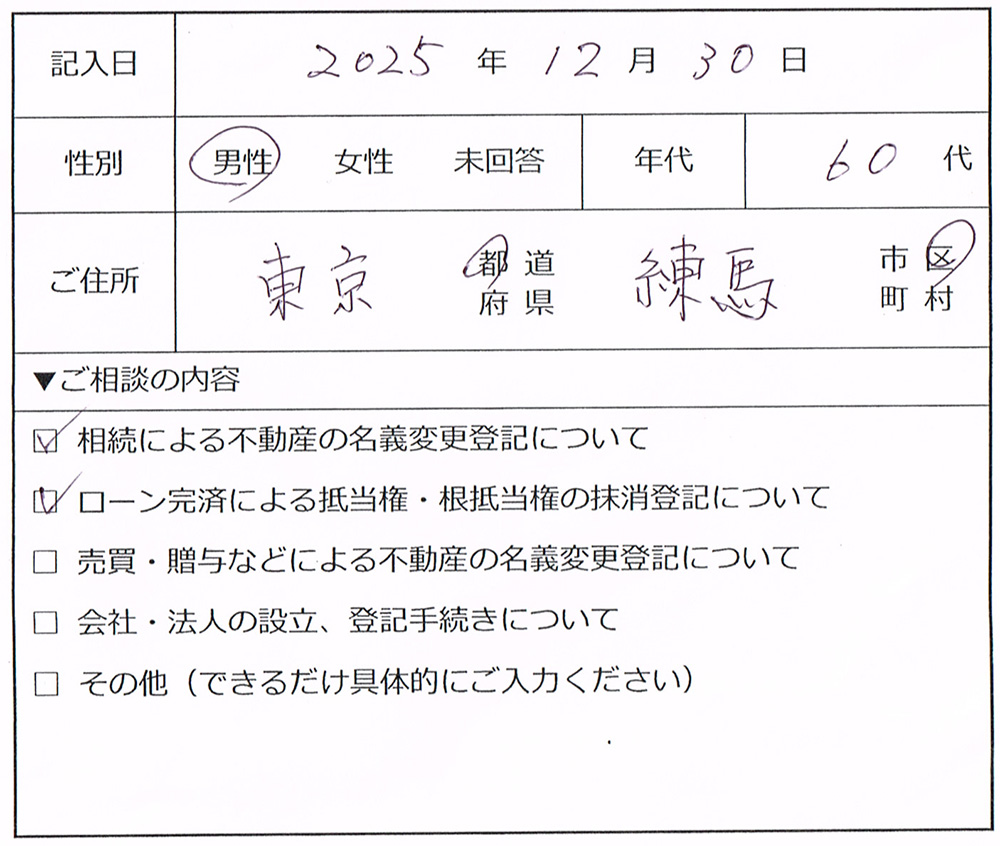 記入日 2025 年 12 月 30 日
性別 男性 女性 未回答 年代 60 代
ご住所 東京 都道府県 練馬 市区町村
▼ご相談の内容
☑ 相続による不動産の名義変更登記について
☑ ローン完済による抵当権・根抵当権の抹消登記について
□ 売買・贈与などによる不動産の名義変更登記について
□ 会社・法人の設立、登記手続きについて
□ その他（できるだけ具体的にご入力ください）